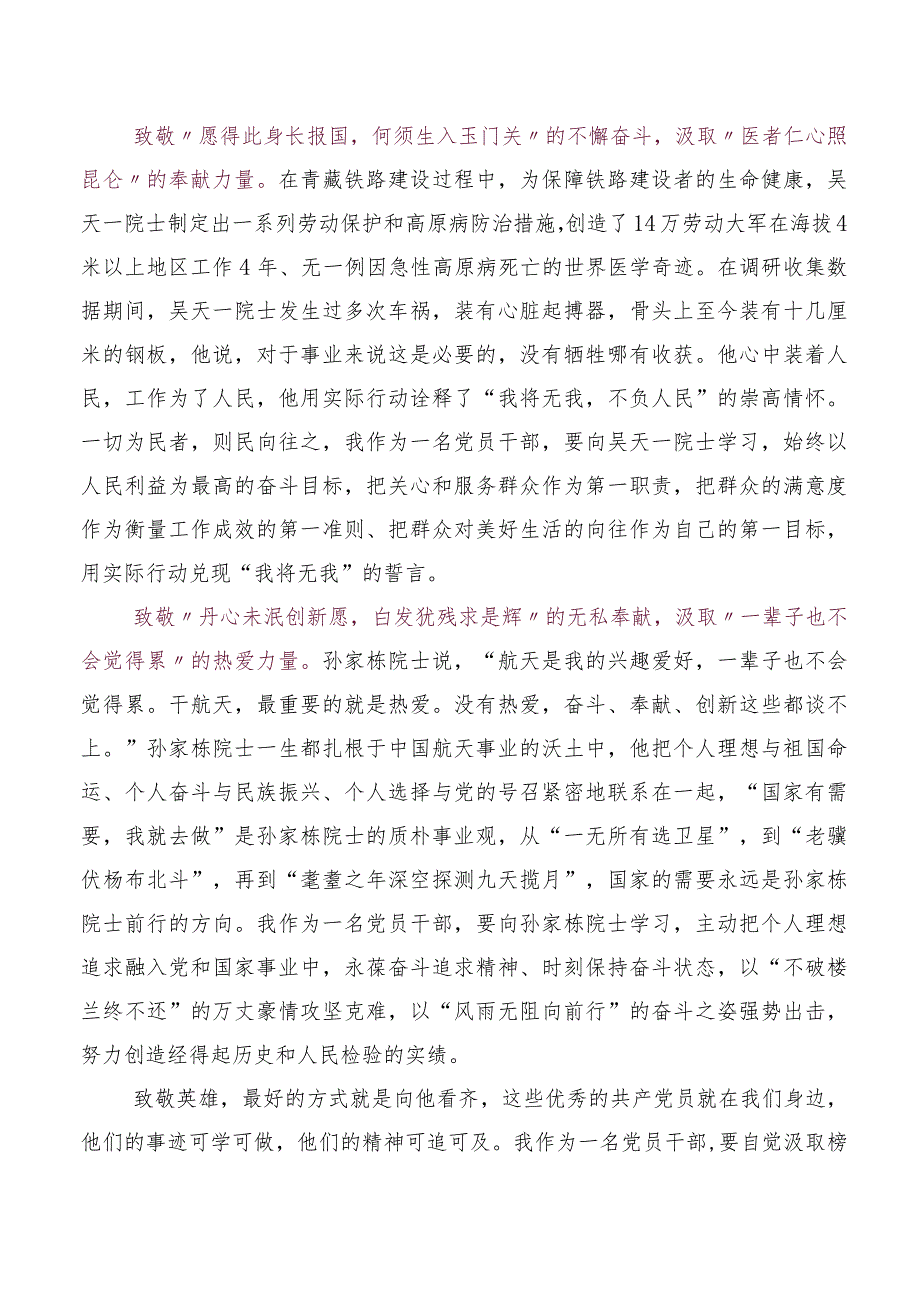 致敬〃愿得此身长报国，何须生入玉门关〃的不懈奋斗，汲取〃医者仁心照
昆仑〃的奉献力量。在青藏铁路建设过程中，为保障铁路建设者的生命健康，吴
天一院士制定出一系列劳动保护和高原病防治措施,创造了14万劳动大军在海拔4
米以上地区工作4年、无一例因急性高原病死亡的世界医学奇迹。在调研收集数
据期间，吴天一院士发生过多次车祸，装有心脏起搏器，骨头上至今装有十几厘
米的钢板，他说，对于事业来说这是必要的，没有牺牲哪有收获。他心中装着人
民，工作为了人民，他用实际行动诠释了“我将无我，不负人民”的崇高情怀。
一切为民者，则民向往之，我作为一名党员干部，要向吴天一院士学习，始终以
人民利益为最高的奋斗目标，把关心和服务群众作为第一职责，把群众的满意度
作为衡量工作成效的第一准则、把群众对美好生活的向往作为自己的第一目标，
用实际行动兑现“我将无我”的誓言。
致敬〃丹心未泯创新愿，白发犹残求是辉〃的无私奉献，汲取〃一辈子也不
会觉得累〃的热爱力量。孙家栋院士说，“航天是我的兴趣爱好，一辈子也不会
觉得累。干航天，最重要的就是热爱。没有热爱，奋斗、奉献、创新这些都谈不
上。”孙家栋院士一生都扎根于中国航天事业的沃土中，他把个人理想与祖国命
运、个人奋斗与民族振兴、个人选择与党的号召紧密地联系在一起，“国家有需
要，我就去做”是孙家栋院士的质朴事业观，从“一无所有选卫星”，到“老骥
伏杨布北斗”，再到“耄耋之年深空探测九天揽月”，国家的需要永远是孙家栋
院士前行的方向。我作为一名党员干部，要向孙家栋院士学习，主动把个人理想
追求融入党和国家事业中，永葆奋斗追求精神、时刻保持奋斗状态，以“不破楼
兰终不还”的万丈豪情攻坚克难，以“风雨无阻向前行”的奋斗之姿强势出击，
努力创造经得起历史和人民检验的实绩。
致敬英雄，最好的方式就是向他看齐，这些优秀的共产党员就在我们身边，
他们的事迹可学可做，他们的精神可追可及。我作为一名党员干部,要自觉汲取榜